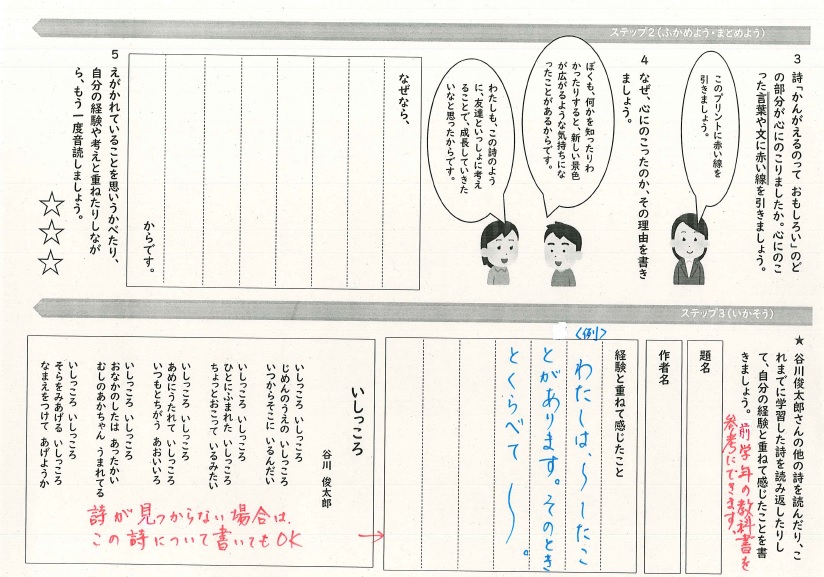 ステップ2(ふかめよう・まとめよう)
3 詩「かんがえるのって おもしろい」のど
の部分が心にのこりましたか。心にのこ
った言葉や文に赤い線を引きましょう。
このプリントに赤い線を
引きましょう。
4 なぜ、心にのこったのか、その理由を書き
ましょう。
ぼくも、何かを知ったりわ
かったりすると、新しい景色
が広がるような気持ちにな
ったことがあるからです。
わたしも、この詩のよう
に、友達といっしょに考え
ることで、成長していきた
いなと思ったからです。
なぜなら、
からです。
5 えがかれていることを思いうかべたり、
自分の経験や考えと重ねたりしなが
ら、もう一度音読しましょう。
☆☆☆
ステップ3(いかそう)
★ 谷川俊太郎さんの他の詩を読んだり、こ
れまでに学習した詩を読み返したりし
て、自分の経験と重ねて感じたことを書
きましょう。
前学年の教科書を
参考にできます。
題名
作者名
経験と重ねて感じたこと
〈例〉
わたしは、〜したこ
とがあります。そのとき
とくらべて 〜。
いしっころ
谷川 俊太郎
いしっころ いしっころ
じめんのうえの いしっころ
いつからそこに いるんだい
いしっころ いしっころ
ひとにふまれた いしっころ
ちょっとおこって いるみたい
いしっころ いしっころ
あめにうたれて いしっころ
いつもとちがう あおいいろ
いしっころ いしっころ
おなかのしたは あったかい
むしのあかちゃん うまれてる
いしっころ いしっころ
そらをみあげる いしっころ
なまえをつけて あげようか
詩が見つからない場合は、
この詩について書いてもOK →